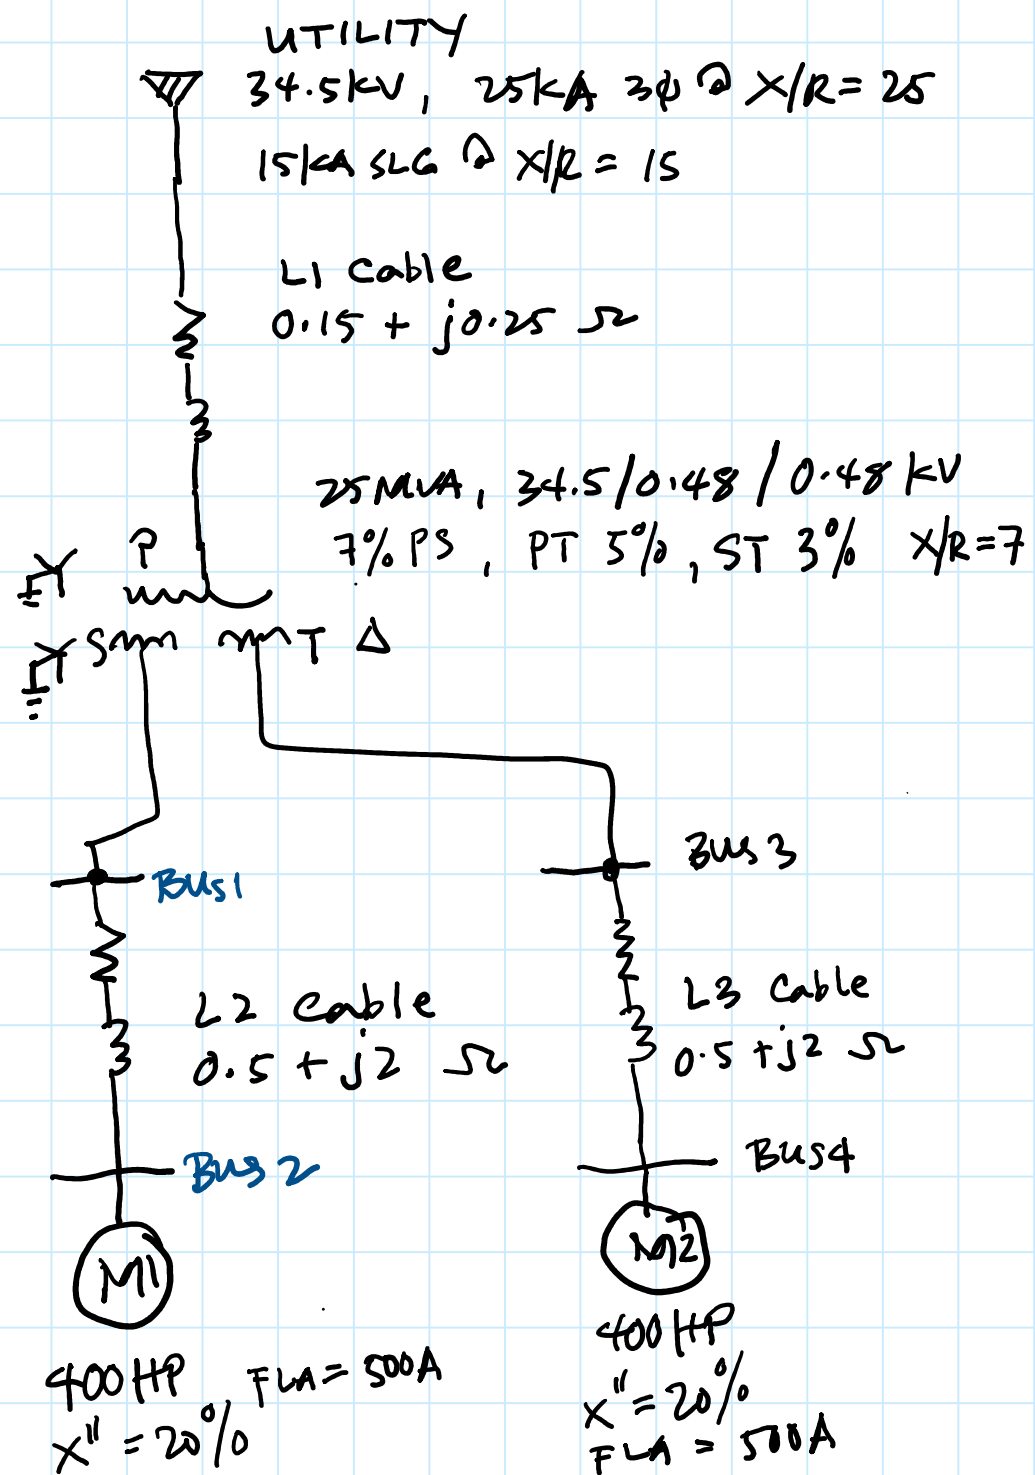 UTILITY
34.5kV, 25kA 3φ @ X/R = 25
15kA SLG @ X/R = 15
L1 Cable
0.15 + j0.25 Ω
25MVA, 34.5/0.48/0.48 kV
7% PS, PT 5%, ST 3% X/R=7
P
S T Δ
Bus1
Bus3
L2 Cable
0.5 + j2 Ω
L3 Cable
0.5 + j2 Ω
Bus2
Bus4
M1
M2
400HP FLA = 500A
X" = 20%
400HP
X" = 20%
FLA = 500A